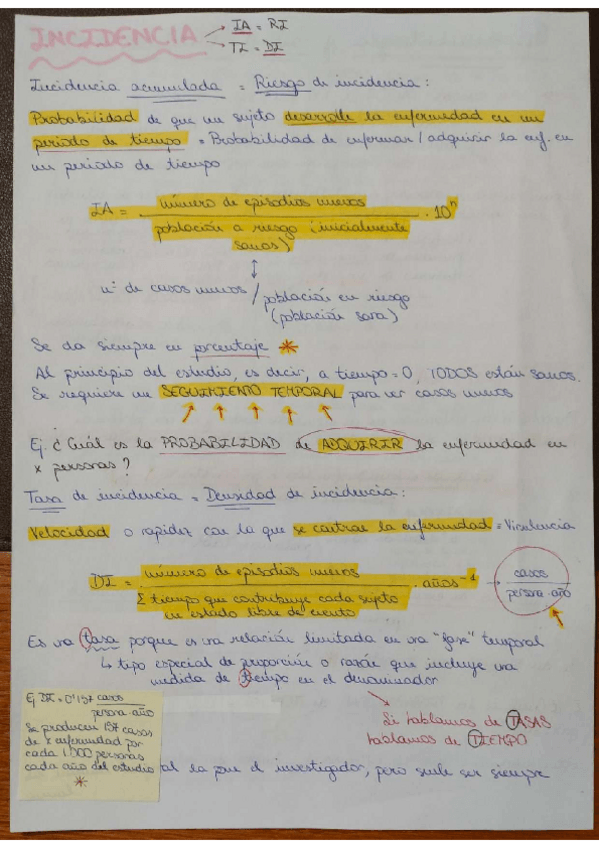 INCIDENCIA → IA = RI
→ TI = DI
Incidencia acumulada = Riesgo de incidencia :
Probabilidad de que un sujeto desarrolle la enfermedad en un
periodo de tiempo = Probabilidad de enfermar / adquirir la enf. en
un periodo de tiempo
IA = número de episodios nuevos / población a riesgo (inicialmente sanos) · 10ⁿ
↕
nº de casos nuevos / población en riesgo
(población sana)
Se da siempre en porcentaje *
Al principio del estudio, es decir, a tiempo = 0, TODOS están sanos.
Se requiere un SEGUIMIENTO TEMPORAL para ver casos nuevos
Ej ¿Cuál es la PROBABILIDAD de ADQUIRIR la enfermedad en
x personas?
Tasa de incidencia = Densidad de incidencia :
Velocidad o rapidez con la que se contrae la enfermedad = Virulencia
DI = número de episodios nuevos / Σ tiempo que contribuye cada sujeto en estado libre de evento · años⁻¹ → casos / persona·año
Es una tasa porque es una relación limitada en una "fase" temporal
↳ tipo especial de proporción o razón que incluye una
medida de tiempo en el denominador
Si hablamos de TASAS
hablamos de TIEMPO
Ej DI = 0'137 casos / persona·año
Se producen 137 casos
de x enfermedad por
cada 1.000 personas
cada año del estudio
*
al la pone el investigador, pero suele ser siempre